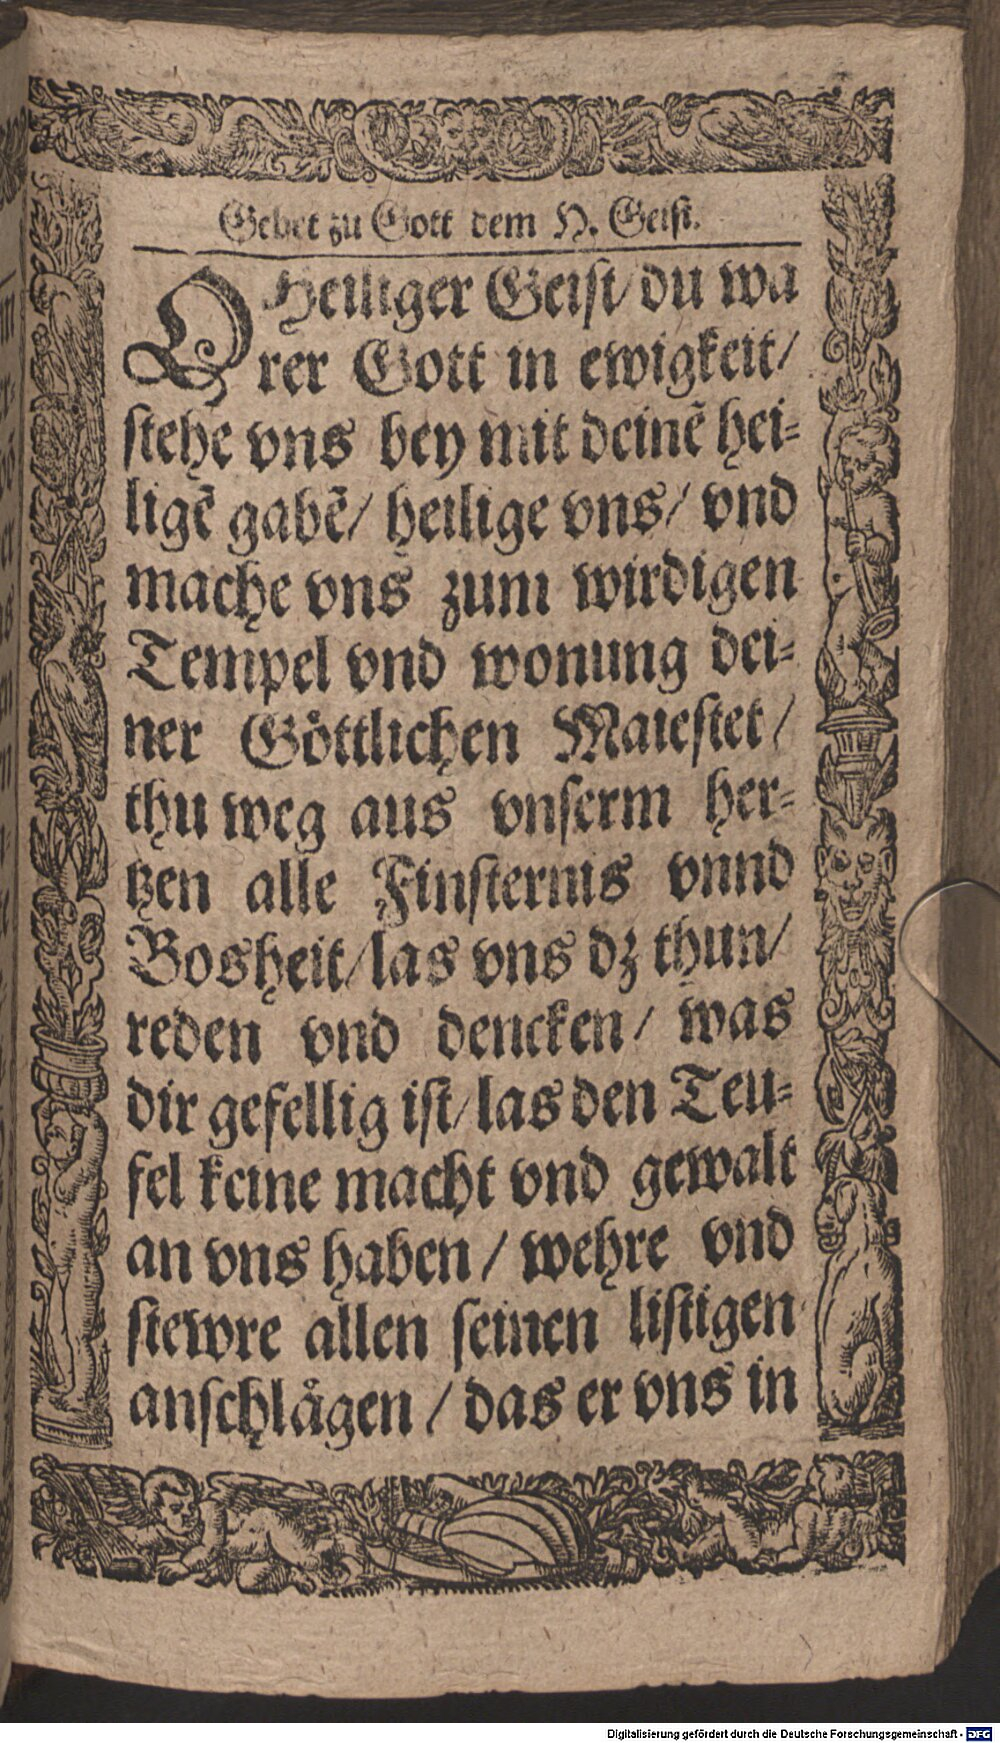 Gebet zu Gott dem H. Geist.
O Heiliger Geist/ du wa
rer Gott in ewigkeit/
stehe vns bey mit deinẽ hei=
ligẽ gabẽ/ heilige vns/ vnd
mache vns zum wirdigen
Tempel vnd wonung dei=
ner Goͤttlichen Maiestet/
thu weg aus vnserm her=
tzen alle Finsternis vnnd
Bosheit/ las vns dz thun/
reden vnd dencken/ was
dir gefellig ist/ las den Teu=
fel keine macht vnd gewalt
an vns haben/ wehre vnd
stewre allen seinen listigen
anschlaͤgen/ das er vns in
Digitalisierung gefördert durch die Deutsche Forschungsgemeinschaft - DFG